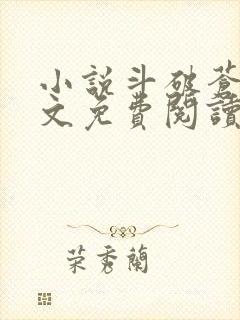 小說斗破蒼
文免費閱讀
荣秀蘭